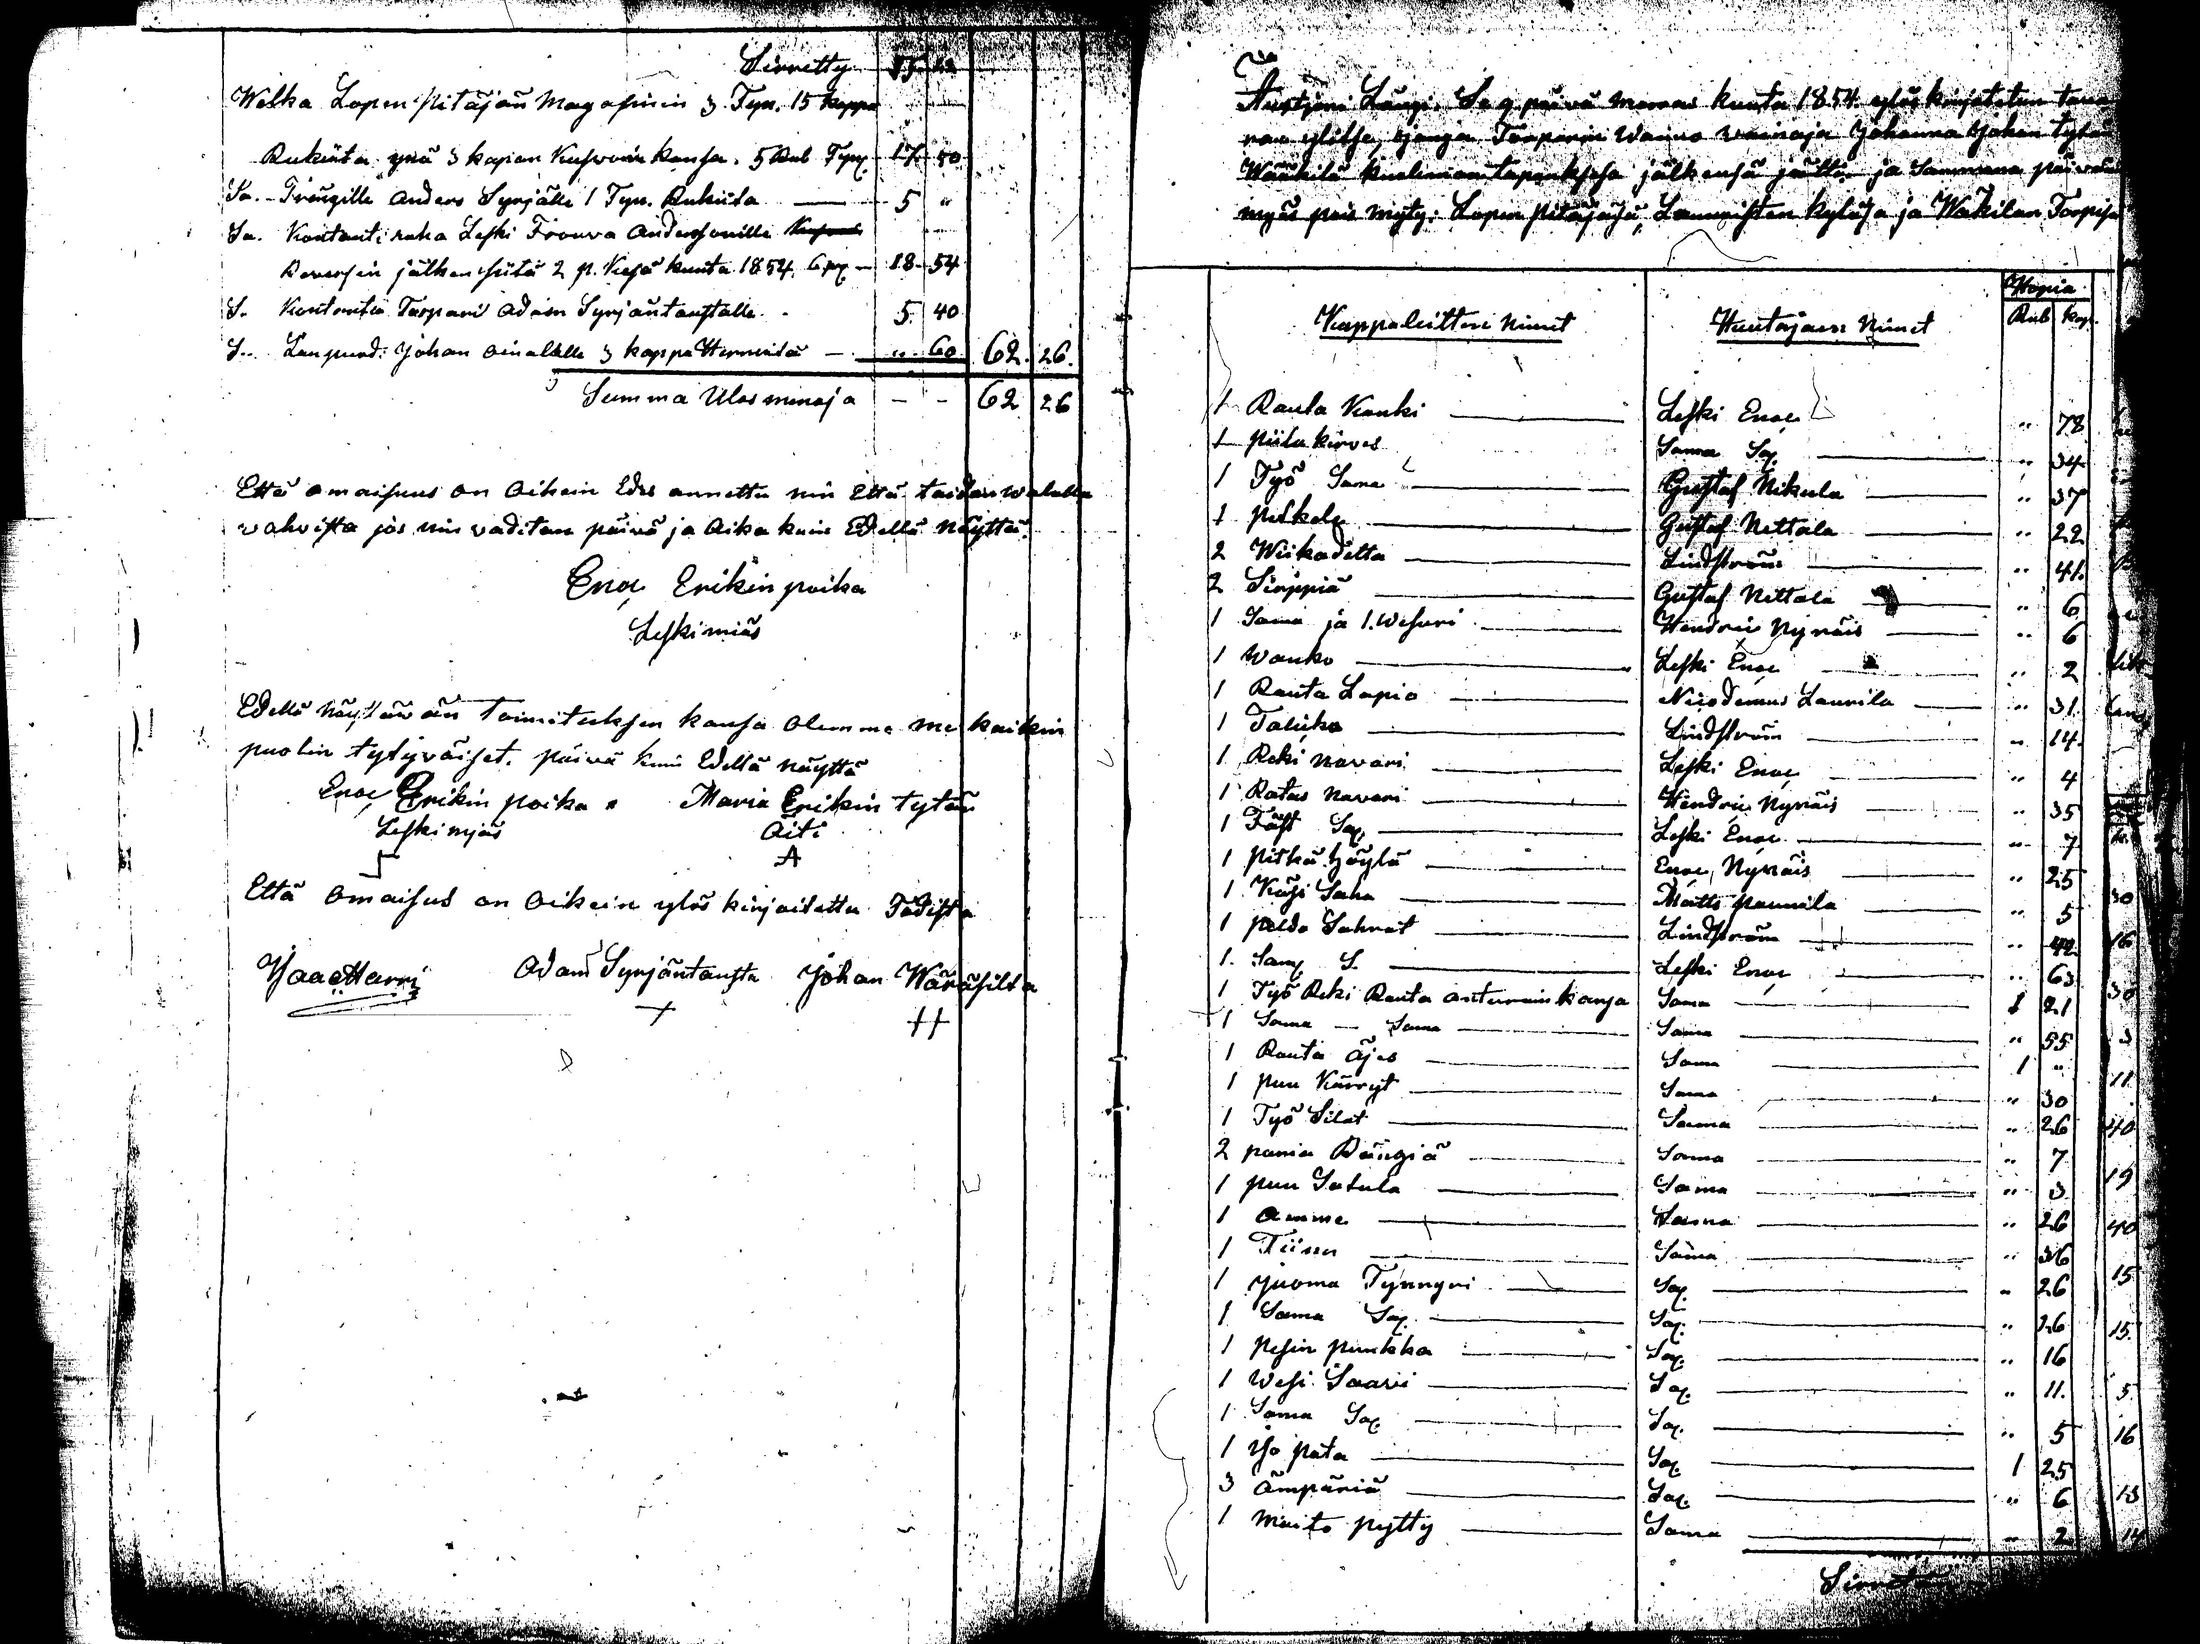 Siirretty
Welka Lopen Pitäjän Magasiniin 3 Tyn. 15 kappa
Rukiita ynä 3 kapian Kaswoin kansa. 5 Rub Tyn. 17 50
Sa. Träugille Anders Syrjälle 1 Tyn. Rukiita — 5 "
Sa. Kontanti raha Leski Frouva Anderssonille
Reversin jälken siitä 2 p. Kesä kuuta 1854. — 18 54
S. Kontantia Torpari Adam Syrjäntaustalle 5 40
S. Lampuod. Johan 3 kappa Herneitä — " 60 62. 26.
Summa Ulos menoja - - 62 26
Että omaisuus on Oikein Edes annettu niin Että taidan walalla
vahvista jos niin vaditan päivä ja Aika kuin Edellä näyttää.
Enoc Erikin poika
Leskimiäs
Edellä Näyttävän toimituksen kansa olemme me kaikin
puolin tytyväiset. päivä kuin Edellä näyttä
Enoc Erikin poika Maria Erikin tytär
Leskimjäs Äiti
A
Että omaisus on Oikein ylös kirjoitettu Todista
Isaac Harri Adam Syrjäntausta Johan Wäräsilta
+ ++
Auktjoni Längi. Sa 9 päivä Marras kuuta 1854. ylös kirjotetun tava
ran ylitse, Torparin Waimo vainaja Johanna Johan tytär
Wäkilä kuolemantapauksesa jälkensä jätti ja Sammana päivänä
myös pois myty: Lopen Pitäjäsä, Launoisten kyläsä ja Wäkilän Torpisa
Kappaleitten Nimet Huutajaen Nimet Hopia
Rub kop.
1 Rauta Kanki — Leski Enoc " 78
1 piilu kirves Sama Sa. — " 34
1 Työ Sama Gustaf Nikula — " 37
1 — Gustaf Nettala — " 22
2 Wiikadetta — Lindström — " 41.
2 Sirppiä — Gustaf Nettala " 6
1 Sama ja 1. Wesuri — Hendric Nynäis — " 6
1 Wanko — Leski Enoc — " 2
1 Rauta Lapio — Nicodemus Laurila — " 31.
1 Talicko — Lindström — " 14.
1 Reki Navari — Leski Enoc — " 4
1 Ratas Navari — Hendric Nynäis — " 35
1 Sa. — Leski Enoc — " 7
1 Pitkä höylä — Enoc, Nynäis — " 25
1 Käsi Saha — Matts — " 5
1 peldo Sahrat — Lindström — " 42.
1. Sam. S. — Leski Enoc — " 63
1 Työ Reki Rauta anturain kansa Sama — 1 21
1 Sama — Sama — Sama — " 55
1 Rauta Äjes — Sama — 1 "
1 puu Kärryt — Sama — " 30
1 Työ Silat — Sama — " 26
2 paria Rängiä — Sama — " 7
1 puu Satula — Sama — " 3
1 Amme — Sama — " 26
1 Tiinu — Sama — " 36
1 Juoma Tynnyri — Sa. — " 26
1 Sama Sa. — Sa. — " 26
1 pesin punkka — Sa. — " 16
1 Wesi Saavi — Sa. — " 11.
1 Sama Sa. — Sa. — " 5
1 Iso pata — Sa. — 1 25
3 Ämpäriä — Sa. — " 6
1 Maito pytty — Sama — " 2